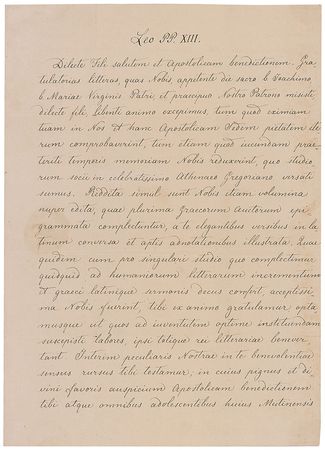 Leo PP. XIII.
Dilecte Fili salutem et Apostolicam benedictionem. Gra
tulatorias litteras, quas Nobis, appetente die sacro b. Ioachimo,
b. Mariae Virginis Patri, et praecipuo Nostro Patrono misisti,
dilecte fili, libenti animo excepimus, tum quod eximiam
tuam in Nos et hanc Apostolicam Sedem pietatem ite
rum comprobaverint, tum etiam quod iucundam prae
teriti temporis memoriam Nobis reduxerint, quo studio
rum socii in celebratissimo Athenaeo Gregoriano versati
sumus. Reddita simul sunt Nobis etiam volumina
nuper edita, quae plurima Graecorum Auctorum epi
grammata complectuntur, a te elegantibus versibus in la
tinum conversa et aptis adnotationibus illustrata. Quae
quidem cum pro singulari studio quo complectimur
quidquid ad humaniorum litterarum incrementum
et graeci latinique sermonis decus confert, acceptissi
ma Nobis fuerint, tibi ex animo gratulamur opta
musque ut quos ad iuventutem optime instituendam
suscepisti labores, ipsi totique rei litterariae bene
vertant Interim peculiaris Nostrae in te benevolentiae
sensus rursus tibi testamur; in cuius pignus et di
vini favoris auspicium Apostolicam benedictionem
tibi atque omnibus adolescentibus huius Mutinensis